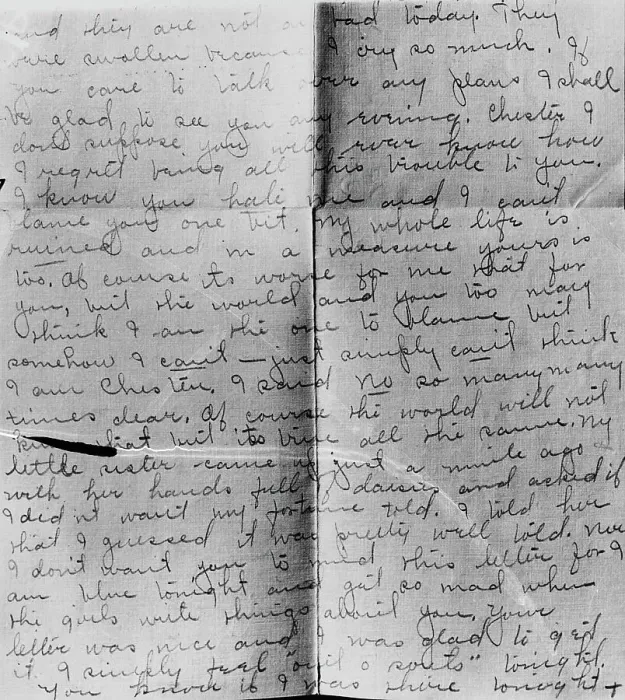 and they are not so bad today. They
were swollen because I cry so much. If
you care to talk over any plans I shall
be glad to see you any evening. Chester I
don't suppose you will ever know how
I regret being all this trouble to you.
I know you hate me and I can't
blame you one bit. My whole life is
ruined and in a measure yours is
too. Of course its worse for me that for
you, but the world and you too may
think I am the one to blame but
somehow I can't – just simply can't think
I am Chester. I said no so many many
times dear. Of course the world will not
know that but its true all the same. My
little sister came up just a minute ago
with her hands full of daisies and asked if
I didn't want my fortune told. I told her
that I guessed it was pretty well told. Now
I don't want you to mind this letter for I
am blue tonight and get so mad when
the girls write things about you. Your
letter was nice and I was glad to get
it. I simply feel "out o sorts" tonight.
You know if I was there tonight +